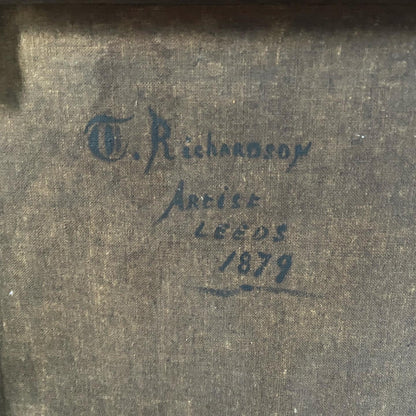 T. Richardson
Artist
LEEDS
1879